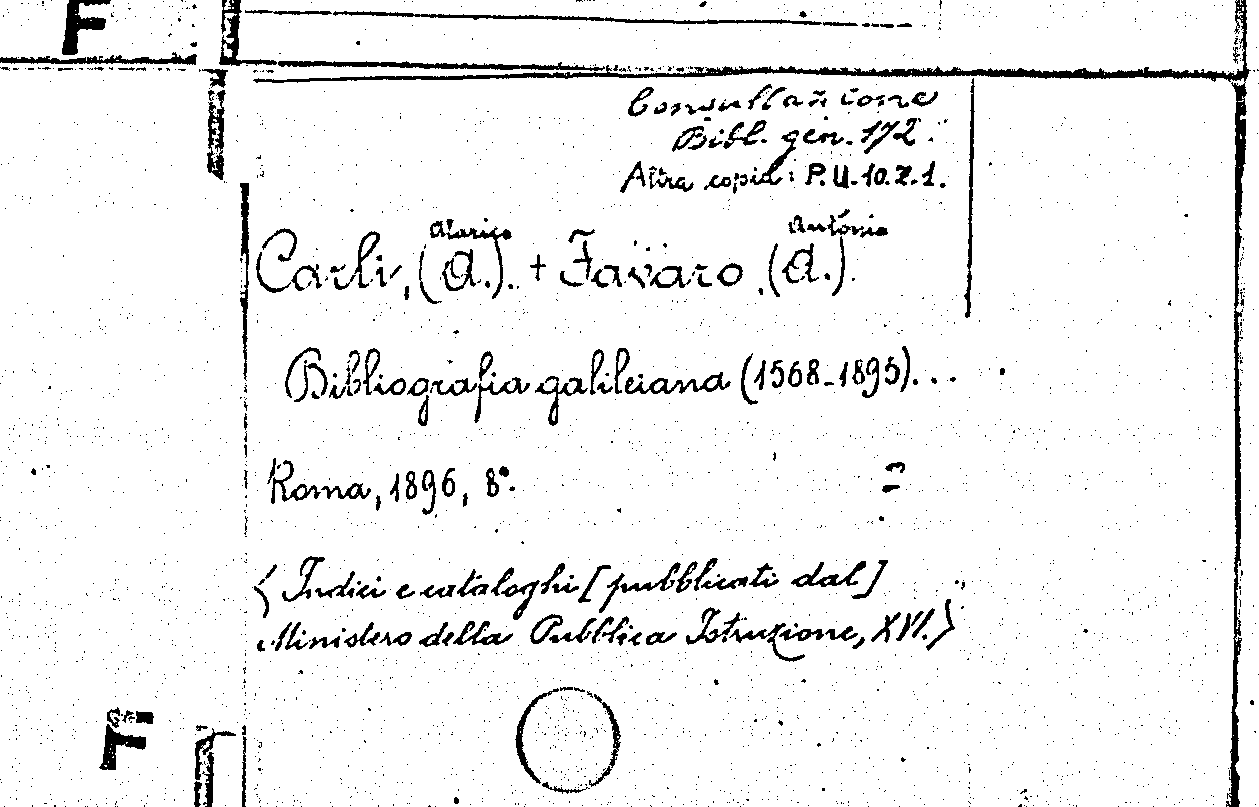 F
Consultazione
Bibl. gen. 172.
Altra copia: P.U.10.Z.1.
Alarico Antonio
Carli, (A.). + Favaro, (A.).
Bibliografia galileiana (1568-1895)...
Roma, 1896, 8°.
<Indici e cataloghi [pubblicati dal]
Ministero della Pubblica Istruzione, XVI.>
F